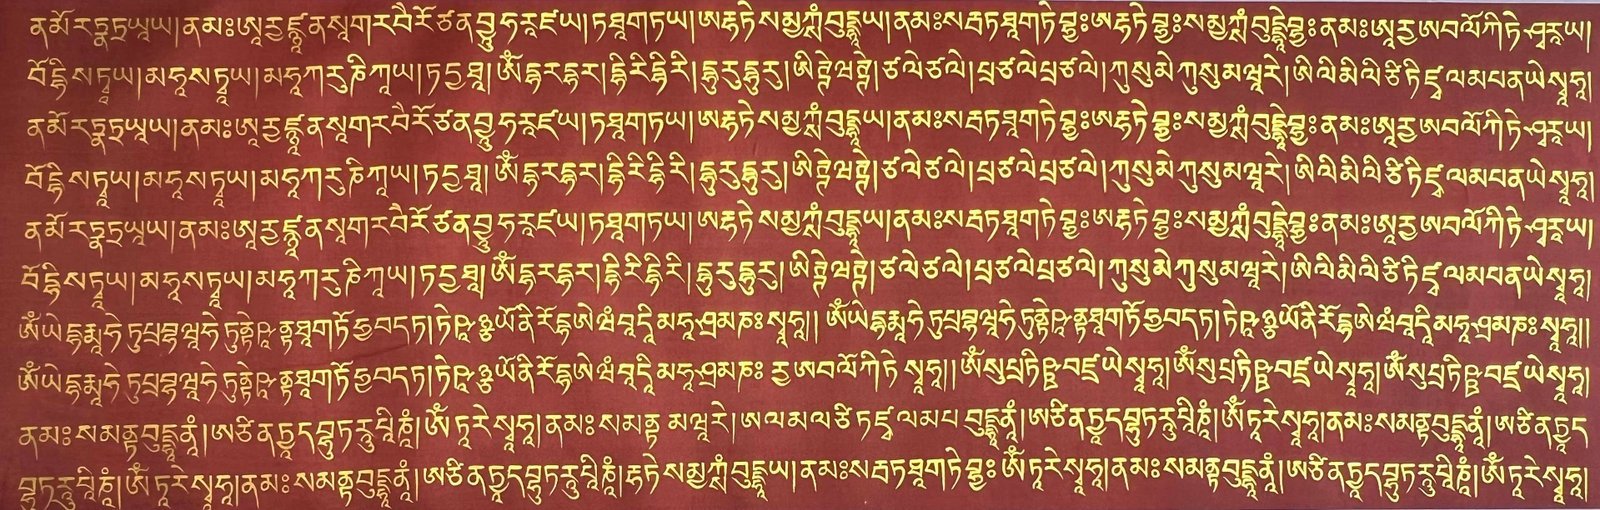 ནམོ་རཏྣཏྲཡཱཡ།ནམཿཨཱརྱཛྙཱནསཱགརབཻརོཙནབྱཱུཧརཱཛཡ།ཏཐཱགཏཡ།ཨརྷཏེསམྱཀྶཾབུདྡྷཱཡ།ནམཿསརྦཏཐཱགཏེབྷྱཿཨརྷཏེབྷྱཿསམྱཀྶཾབུདྡྷེབྷྱཿནམཿཨཱརྱཨབལོཀིཏེཤྭརཱཡ།
བོདྷིསཏྭཱཡ།མཧཱསཏྭཱཡ།མཧཱཀརུཎིཀཱཡ།ཏདྱཐཱ།ཨོཾདྷརདྷར།དྷིརིདྷིརི།དྷུརུདྷུརུ།ཨིཊྚེཝཊྚེ།ཙལེཙལེ།པྲཙལེཔྲཙལེ།ཀུསུམེཀུསུམཝརེ།ཨིལིམིལིཙིཏིཛྭལམཔནཡེསྭཱཧཱ།
ནམོ་རཏྣཏྲཡཱཡ།ནམཿཨཱརྱཛྙཱནསཱགརབཻརོཙནབྱཱུཧརཱཛཡ།ཏཐཱགཏཡ།ཨརྷཏེསམྱཀྶཾབུདྡྷཱཡ།ནམཿསརྦཏཐཱགཏེབྷྱཿཨརྷཏེབྷྱཿསམྱཀྶཾབུདྡྷེབྷྱཿནམཿཨཱརྱཨབལོཀིཏེཤྭརཱཡ།
བོདྷིསཏྭཱཡ།མཧཱསཏྭཱཡ།མཧཱཀརུཎིཀཱཡ།ཏདྱཐཱ།ཨོཾདྷརདྷར།དྷིརིདྷིརི།དྷུརུདྷུརུ།ཨིཊྚེཝཊྚེ།ཙལེཙལེ།པྲཙལེཔྲཙལེ།ཀུསུམེཀུསུམཝརེ།ཨིལིམིལིཙིཏིཛྭལམཔནཡེསྭཱཧཱ།
ནམོ་རཏྣཏྲཡཱཡ།ནམཿཨཱརྱཛྙཱནསཱགརབཻརོཙནབྱཱུཧརཱཛཡ།ཏཐཱགཏཡ།ཨརྷཏེསམྱཀྶཾབུདྡྷཱཡ།ནམཿསརྦཏཐཱགཏེབྷྱཿཨརྷཏེབྷྱཿསམྱཀྶཾབུདྡྷེབྷྱཿནམཿཨཱརྱཨབལོཀིཏེཤྭརཱཡ།
བོདྷིསཏྭཱཡ།མཧཱསཏྭཱཡ།མཧཱཀརུཎིཀཱཡ།ཏདྱཐཱ།ཨོཾདྷརདྷར།དྷིརིདྷིརི།དྷུརུདྷུརུ།ཨིཊྚེཝཊྚེ།ཙལེཙལེ།པྲཙལེཔྲཙལེ།ཀུསུམེཀུསུམཝརེ།ཨིལིམིལིཙིཏིཛྭལམཔནཡེསྭཱཧཱ།
ཨོཾཡེདྷརྨཱཧེཏུཔྲབྷཝཱཧེཏུནྟེཥཱཾཏཐཱགཏོཧྱབདཏ།ཏེཥཱཉྩཡོནིརོདྷཨེཝཾབཱདཱིམཧཱཤྲམཎཿསྭཱཧཱ།།ཨོཾཡེདྷརྨཱཧེཏུཔྲབྷཝཱཧེཏུནྟེཥཱཾཏཐཱགཏོཧྱབདཏ།ཏེཥཱཉྩཡོནིརོདྷཨེཝཾབཱདཱིམཧཱཤྲམཎཿསྭཱཧཱ།།
ཨོཾཡེདྷརྨཱཧེཏུཔྲབྷཝཱཧེཏུནྟེཥཱཾཏཐཱགཏོཧྱབདཏ།ཏེཥཱཉྩཡོནིརོདྷཨེཝཾབཱདཱིམཧཱཤྲམཎཿ རྱཨབལོཀིཏེ སྭཱཧཱ།།ཨོཾསུཔྲཏིཥྛབཛྲཡེསྭཱཧཱ།ཨོཾསུཔྲཏིཥྛབཛྲཡེསྭཱཧཱ།ཨོཾསུཔྲཏིཥྛབཛྲཡེསྭཱཧཱ།
ནམཿསམནྟབུདྡྷཱནཱཾ།ཨཙིནཏྱཱདབྷུཏརཱུཔིཎཱཾ།ཨོཾཏཱརེསྭཱཧཱ།ནམཿསམནྟ མཝརེ།ཨལམལཙིཏཛྭལམཔ བུདྡྷཱནཱཾ།ཨཙིནཏྱཱདབྷུཏརཱུཔིཎཱཾ།ཨོཾཏཱརེསྭཱཧཱ།ནམཿསམནྟབུདྡྷཱནཱཾ།ཨཙིནཏྱཱད
བྷུཏརཱུཔིཎཱཾ།ཨོཾཏཱརེསྭཱཧཱ།ནམཿསམནྟབུདྡྷཱནཱཾ།ཨཙིནཏྱཱདབྷུཏརཱུཔིཎཱཾ།རྷཏེསམྱཀྶཾབུདྡྷཱཡ།ནམཿསརྦཏཐཱགཏེབྷྱཿ ཨོཾཏཱརེསྭཱཧཱ།ནམཿསམནྟབུདྡྷཱནཱཾ།ཨཙིནཏྱཱདབྷུཏརཱུཔིཎཱཾ།ཨོཾཏཱརེསྭཱཧཱ།